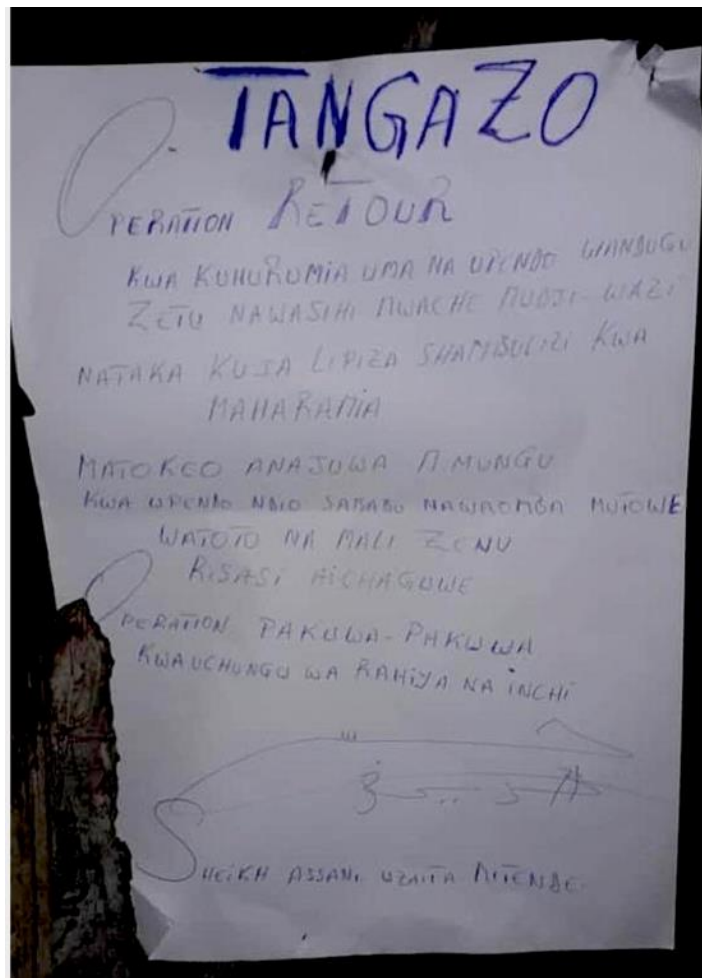 TANGAZO
OPERATION RETOUR
KWA KUHURUMIA UMA NA UPENDO WANDUGU
ZETU NAWASIHI MWACHE MUDJI WAZI
NATAKA KUJA LIPIZA SHAMBULIZI KWA
MAHARAMIA
MATOKEO ANAJUWA M.MUNGU
KWA UPENDO NDIO SABABU NAWAOMBA MUTOWE
WATOTO NA MALI ZENU
RISASI AICHAGUWE
OPERATION PAKUWA-PAKUWA
KWA UCHUNGU WA RAHIYA NA INCHI
SHEIKH ASSANI